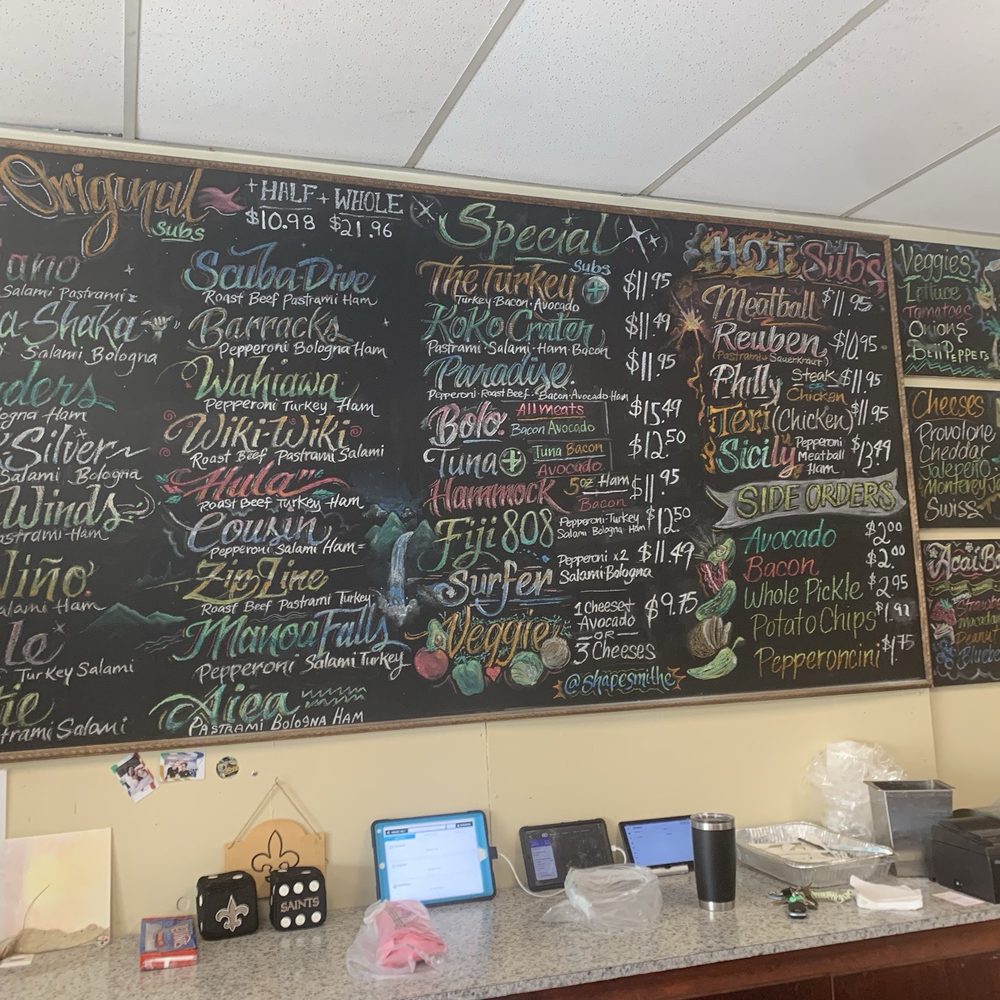 Original
subs
+HALF + WHOLE
$10.98 $21.96
Salami Pastrami
Salami Bologna
Bologna Ham
Silver
Salami Bologna
Winds
Pastrami Ham
Salami Ham
Turkey Salami
Salami
Scuba-Dive
Roast Beef Pastrami Ham
Barracks
Pepperoni Bologna Ham
Wahiawa
Pepperoni Turkey Ham
Wiki-Wiki
Roast Beef Pastrami Salami
Hula
Roast Beef Turkey Ham
Cousin
Pepperoni Salami Ham
Zip Line
Roast Beef Pastrami Turkey
Manoa Falls
Pepperoni Salami Turkey
Aiea
Pastrami Bologna Ham
Special
Subs
The Turkey + $11.95
Turkey·Bacon·Avocado
KoKo Crater $11.49
Pastrami·Salami·Ham·Bacon
Paradise $11.95
Pepperoni·Roast Beef·Bacon·Avocado·Ham
Bolo All meats $15.49
Bacon Avocado
Tuna + Tuna Bacon $12.50
Avocado
Hammock 5oz Ham $11.95
Bacon
Fiji 808 Pepperoni·Turkey $12.50
Salami·Bologna·Ham
Surfer Pepperoni x2 $11.49
Salami·Bologna
Veggie 1 Cheese + $9.75
Avocado
OR
3 Cheeses
@shapesmithe
HOT Subs
Meatball $11.95
Reuben $10.95
(Pastrami + Sauerkraut)
Philly Steak or Chicken $11.95
Teri (Chicken) $11.95
Sicily Pepperoni Meatball Ham
SIDE ORDERS
Avocado $2.00
Bacon $2.00
Whole Pickle $2.95
Potato Chips
Pepperoncini $1.75
Veggies
Lettuce
Tomatoes
Onions
Bell Peppers
Cheeses
Provolone
Cheddar
Jalapeño
Monterey
Swiss
Acai
SAINTS